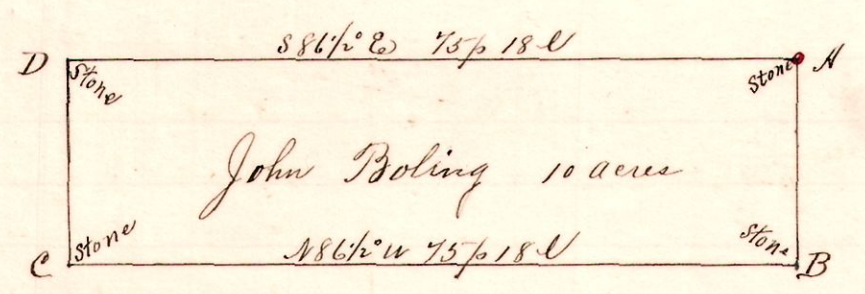 S 86 1/2° E 75p 18 l
D Stone Stone A
John Boling 10 acres
C Stone Stone B
N 86 1/2° W 75p 18 l